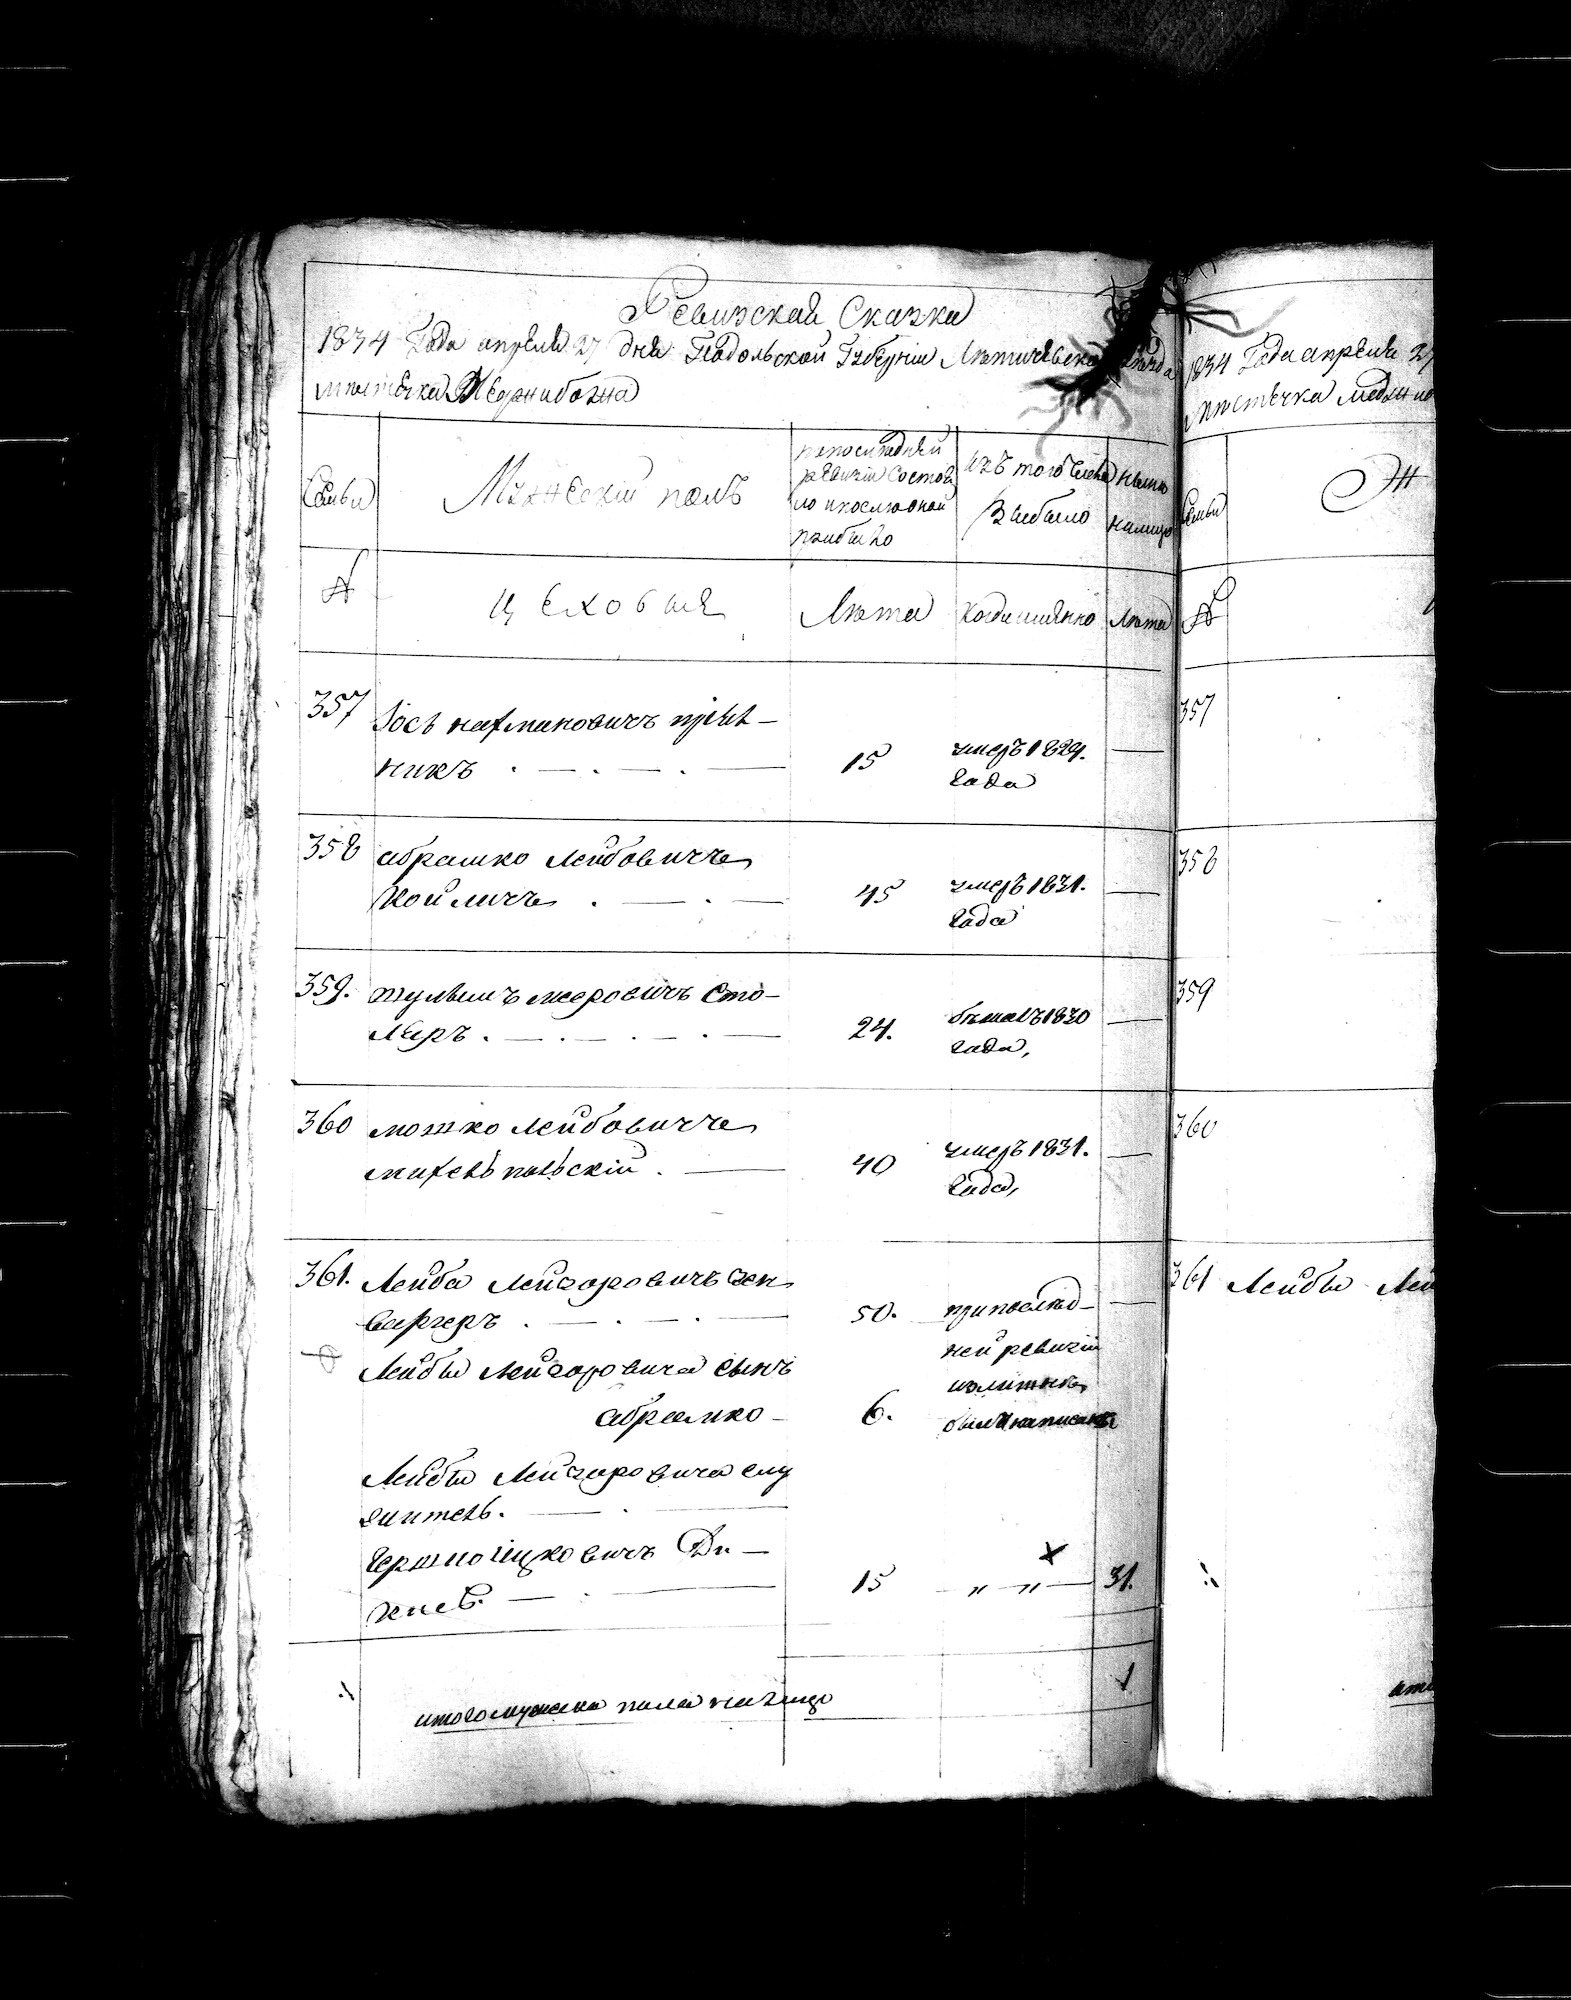 Ревизская Сказка
1834 Года апреля 27 дня Подольской Губернии Летичевска
местечка Меджибожа
Семьи
Мужеский полъ
по последней
ревизіи состоя
ло и после оной
прибыло
изъ того числа
выбыло
ныне
налицо
№
Цеховые
Лета
Когда именно
Лета
357
Іось нахмановичъ пряt-
никъ
15
умеръ 1829.
Года
358
абрашко Лейбовичъ
Койличъ
45
умеръ 1831.
Года
359.
шулимъ меровичъ Сто-
ляръ.
24.
бежалъ 1830
Года,
360
мошко Лейбовичъ
михельпольскій.
40
умеръ 1831.
Года,
361.
Лейба Лейзоровичъ Зен
бергеръ
50.
при послед-
ней ревизіи
Лейбы Лейзоровича сынъ
абрамко
6.
былъ написанъ
Лейбы Лейзоровича слу
житель.
Гершко Іцковичъ
15
" "
31.
итого мужеска пола налицо
1
1834 Года апреля 27
местечка меджибо
Семьи
Ж
№
357
358
359
360
361
Лейбы Лей